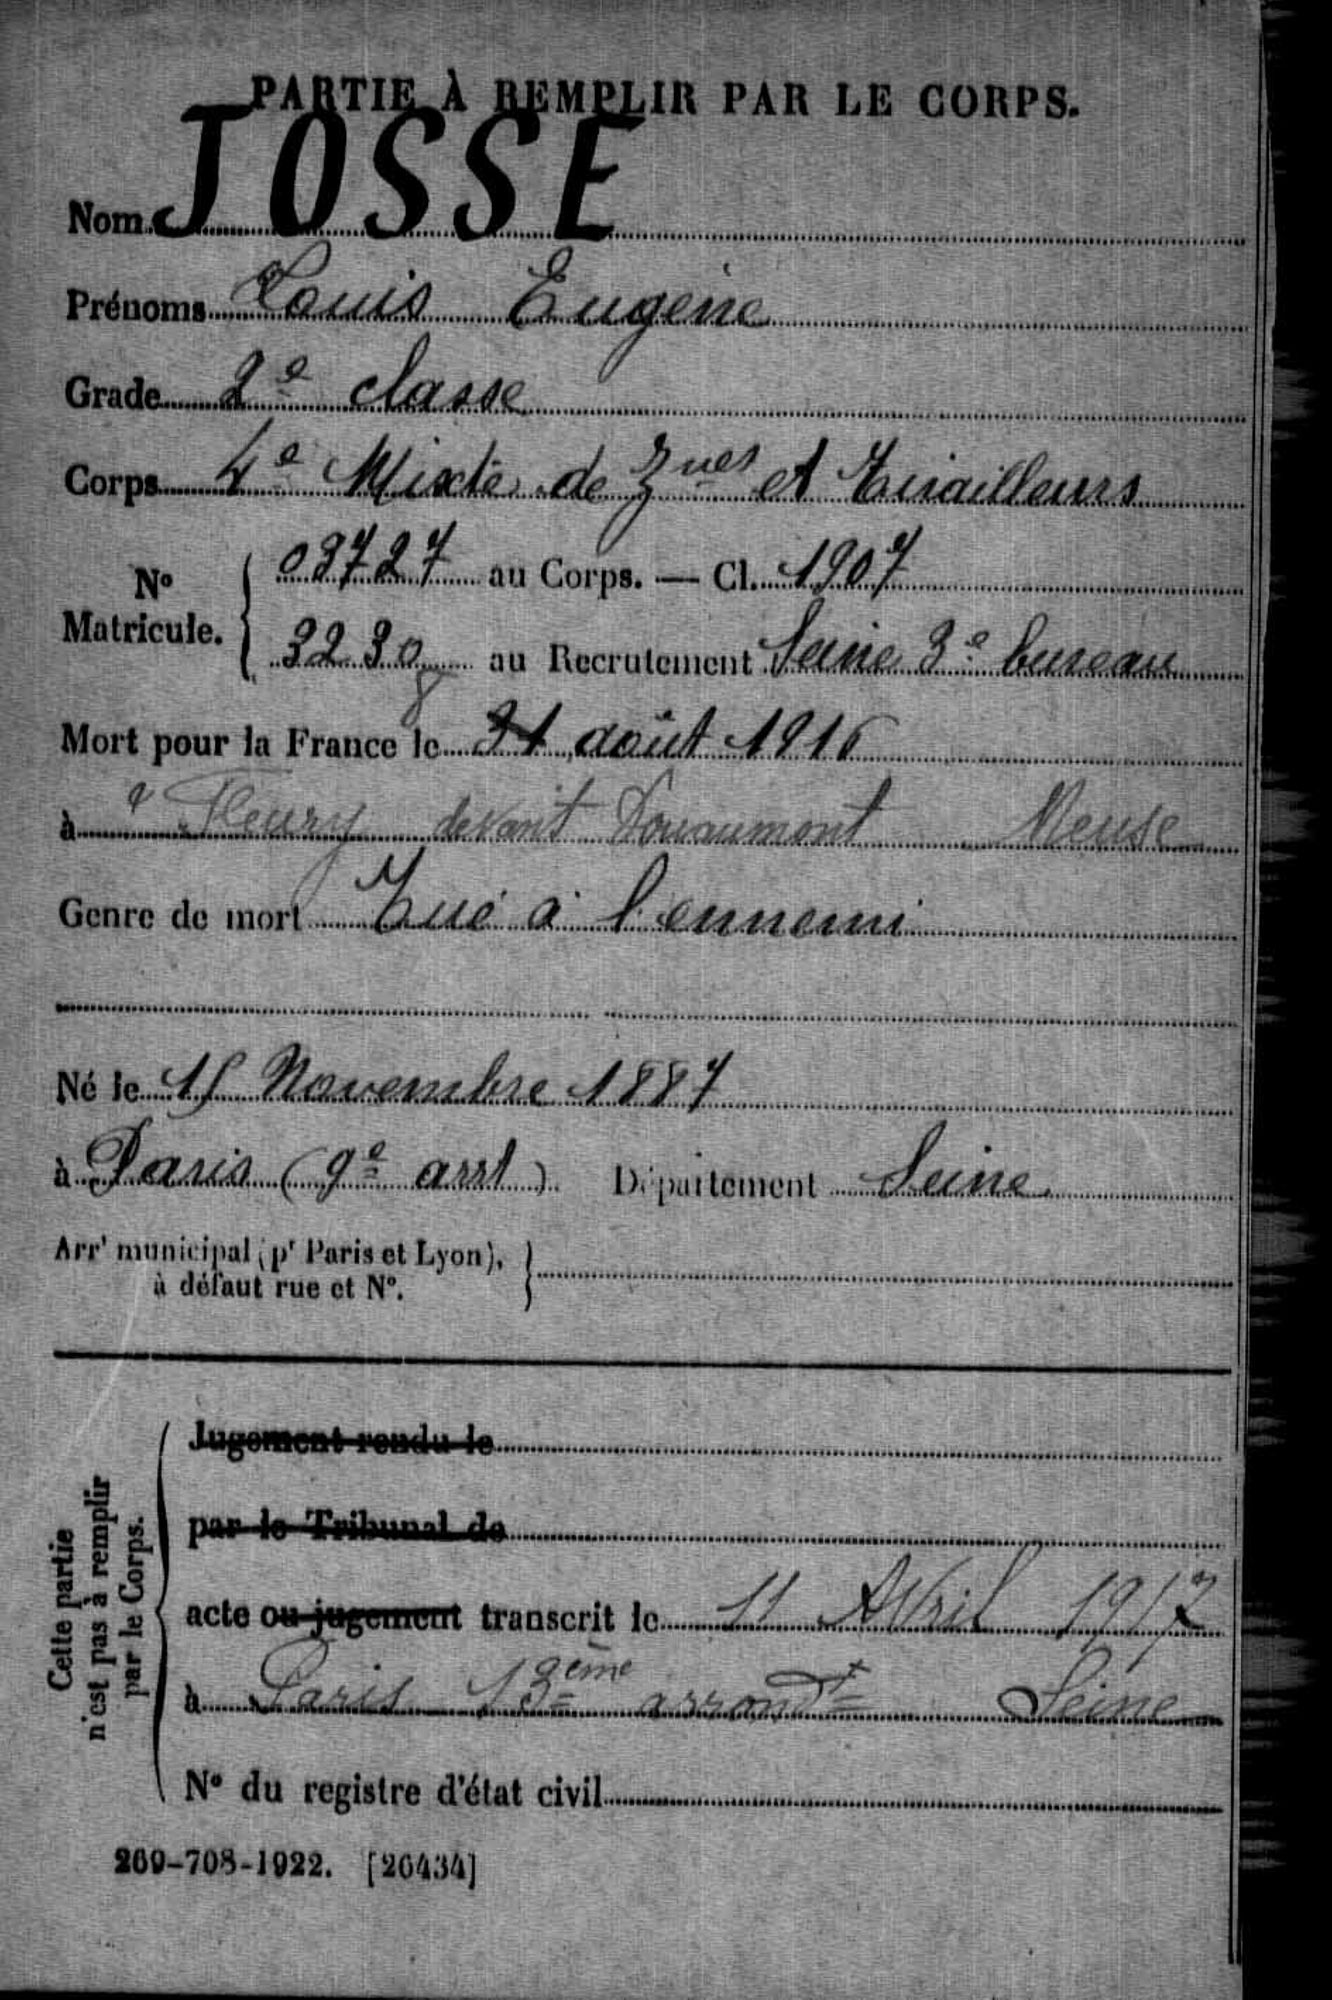 PARTIE À REMPLIR PAR LE CORPS.
Nom JOSSE
Prénoms Louis Eugène
Grade 2e classe
Corps 4e Mixte de Zues et Tirailleurs
No Matricule. { 03727 au Corps. — Cl. 1907
3230 au Recrutement Seine 3e bureau
8
Mort pour la France le 31 août 1916
à Fleury devant Douaumont Meuse
Genre de mort Tué à l'ennemi
Né le 15 Novembre 1887
à Paris (9e arrt) Département Seine
Arrt municipal (pr Paris et Lyon), }
à défaut rue et No.
Cette partie
n'est pas à remplir
par le Corps.
Jugement rendu le
par le Tribunal de
acte ou jugement transcrit le 11 Avril 1917
à Paris 13ème arrondt Seine
No du registre d'état civil
269-708-1922. [26434]